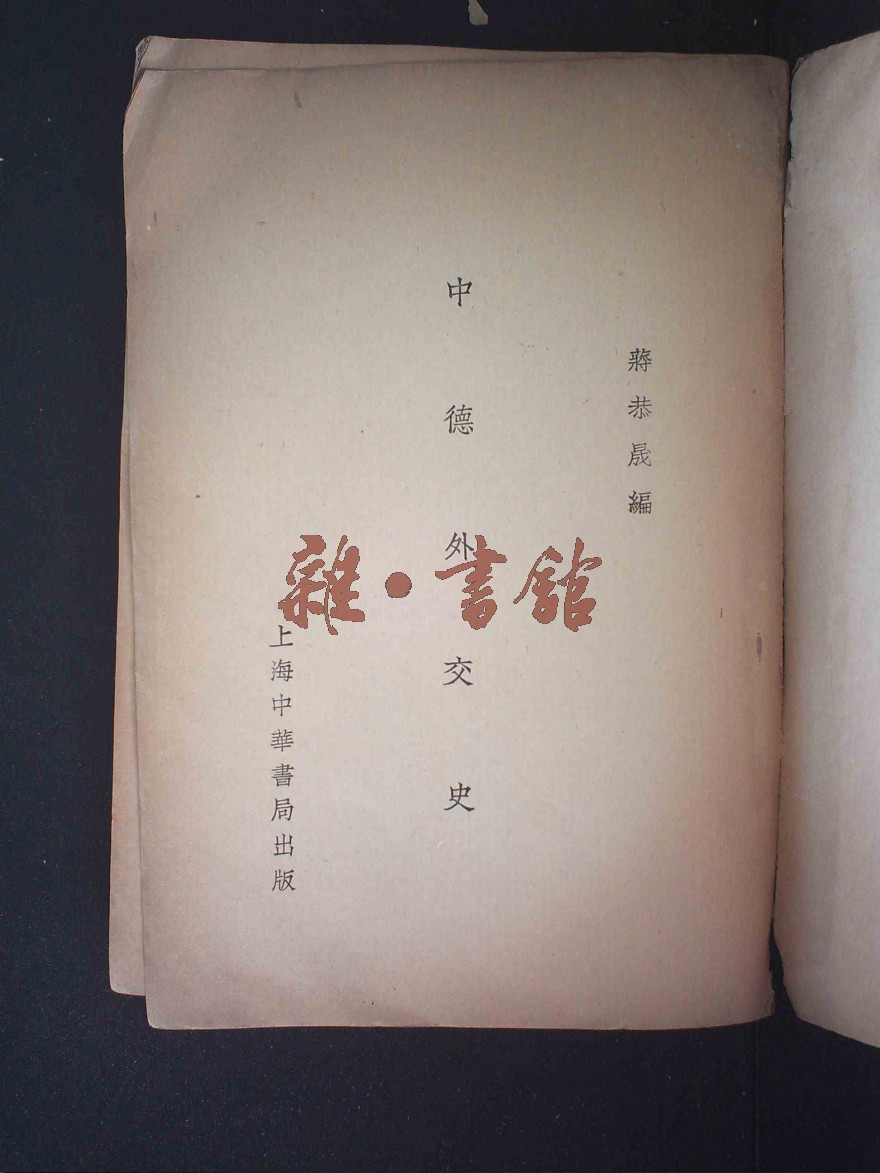 蔣恭晟編
中德外交史
上海中華書局出版
雜·書館